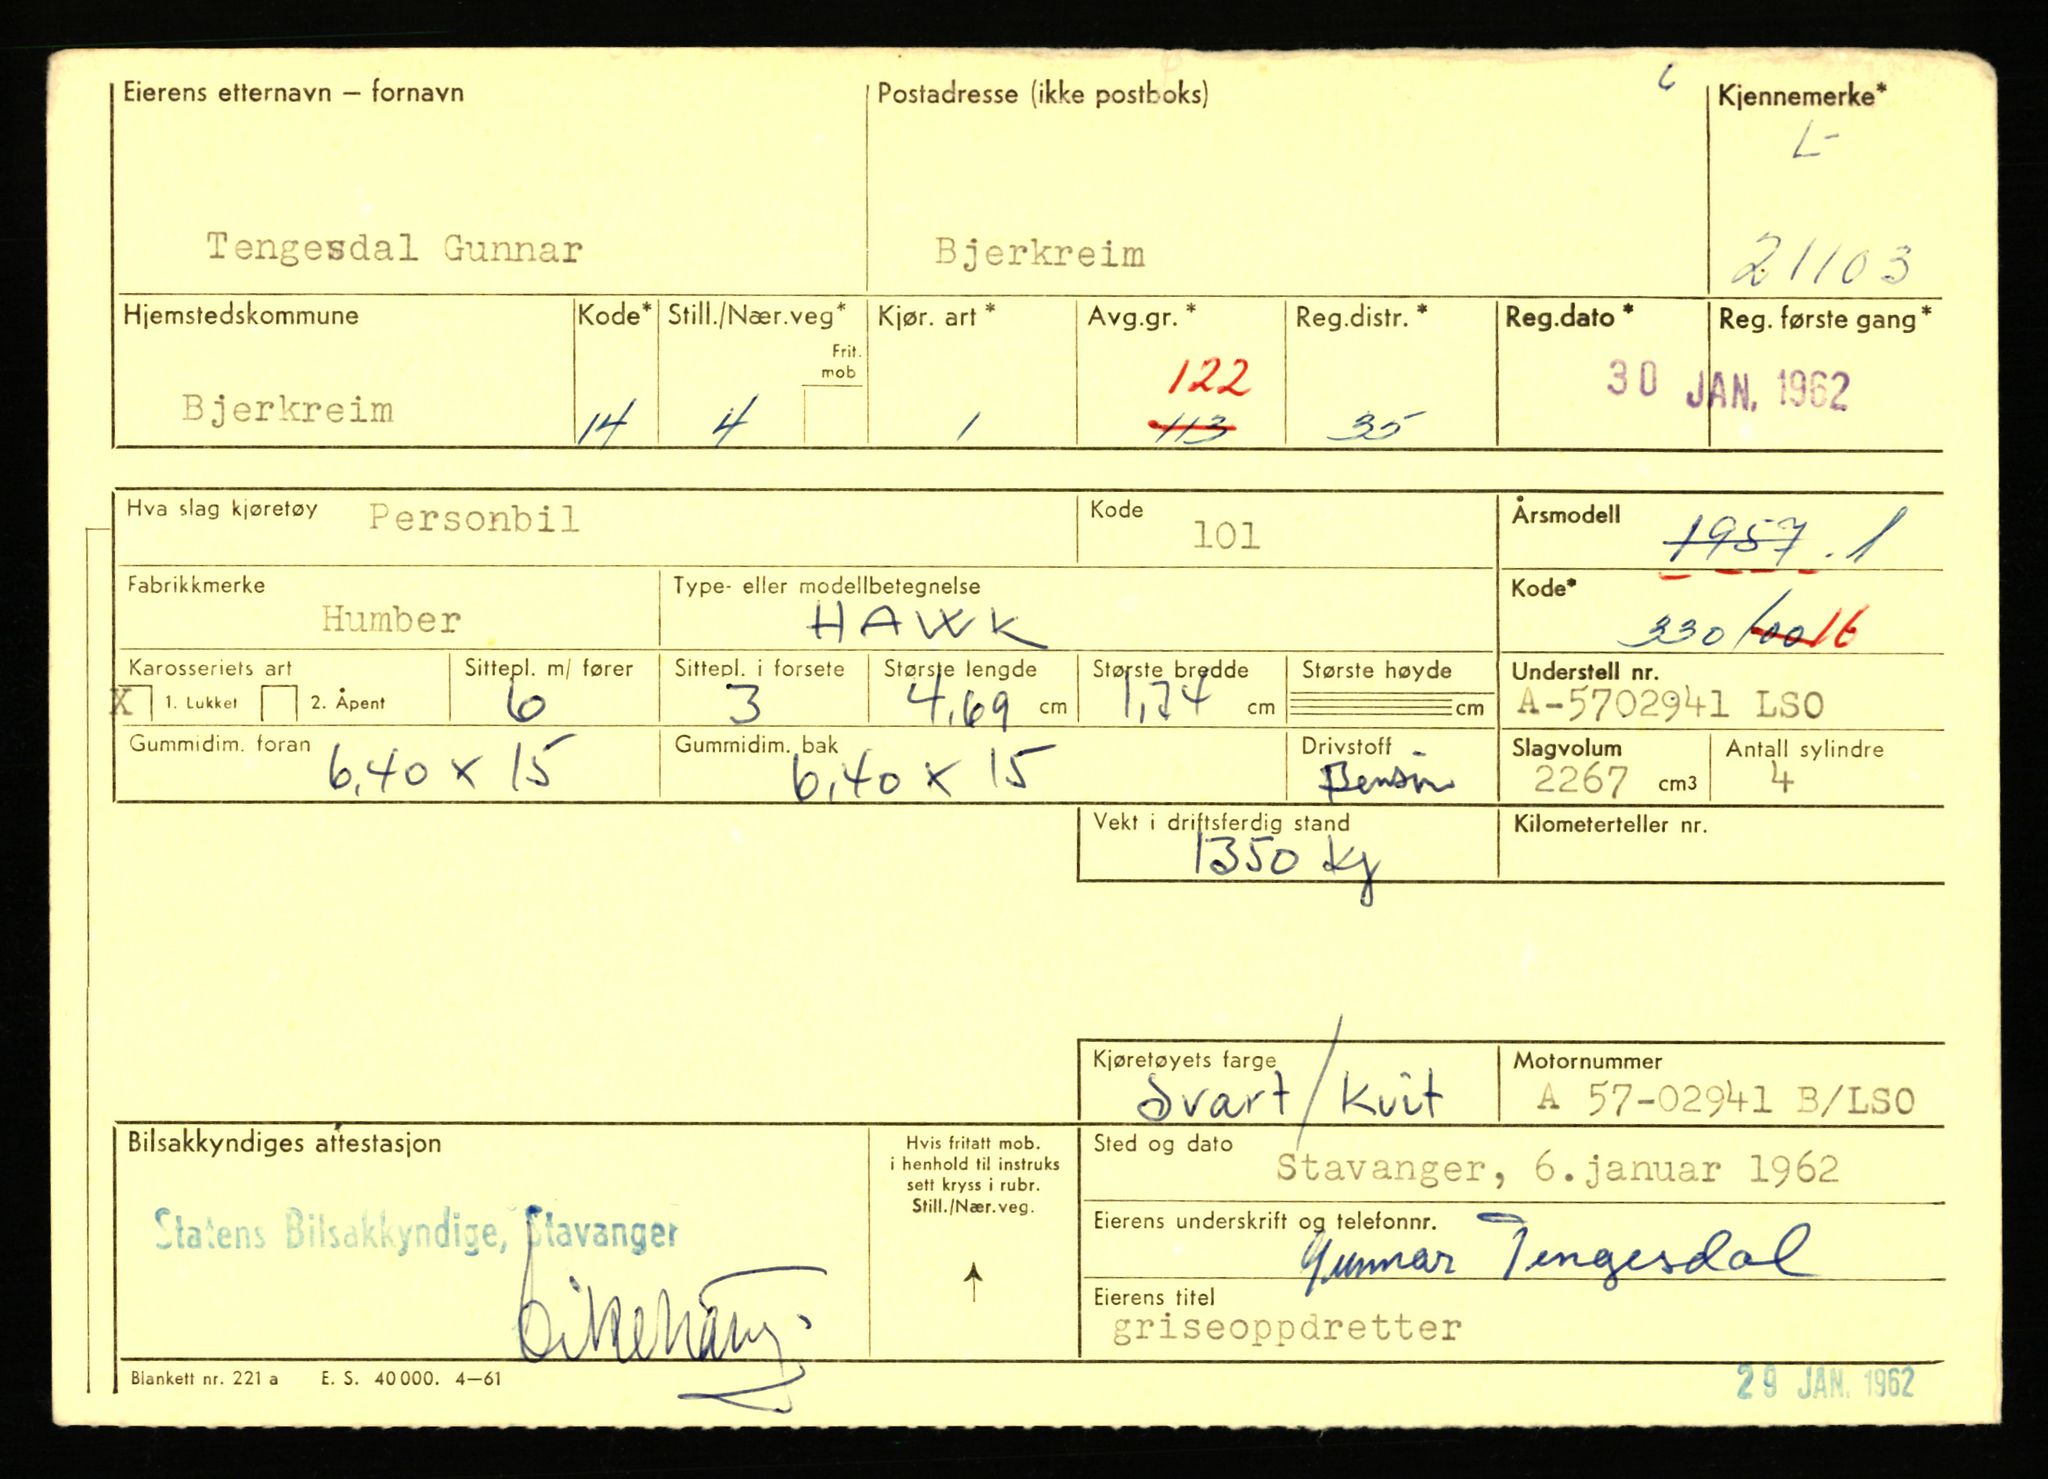 Eierens etternavn – fornavn Postadresse (ikke postboks) Kjennemerke*
L-
Tengesdal Gunnar Bjerkreim 21103
Hjemstedskommune Kode* Still./Nær.veg* Kjør. art* Avg.gr.* Reg.distr.* Reg.dato* Reg. første gang*
Frit. mob
122 30 JAN. 1962
Bjerkreim 14 4 1 113 35
Hva slag kjøretøy Personbil Kode 101 Årsmodell 1957 . 1
Fabrikkmerke Type- eller modellbetegnelse Kode*
Humber HAWK 330/00 16
Karosseriets art Sittepl. m/ fører Sittepl. i forsete Største lengde Største bredde Største høyde Understell nr.
X 1. Lukket 2. Åpent 6 3 4,69 cm 1,74 cm cm A-5702941 LSO
Gummidim. foran Gummidim. bak Drivstoff Slagvolum Antall sylindre
6,40 x 15 6,40 x 15 Bensin 2267 cm3 4
Vekt i driftsferdig stand Kilometerteller nr.
1350 kg
Kjøretøyets farge Motornummer
Svart/Kvit A 57-02941 B/LSO
Bilsakkyndiges attestasjon Hvis fritatt mob. i henhold til instruks sett kryss i rubr. Still./Nær.veg. Sted og dato
Stavanger, 6.januar 1962
Statens Bilsakkyndige, Stavanger Eierens underskrift og telefonnr.
Gunnar Tengesdal
Eierens titel
griseoppdretter
Blankett nr. 221 a E. S. 40 000. 4–61 29 JAN. 1962